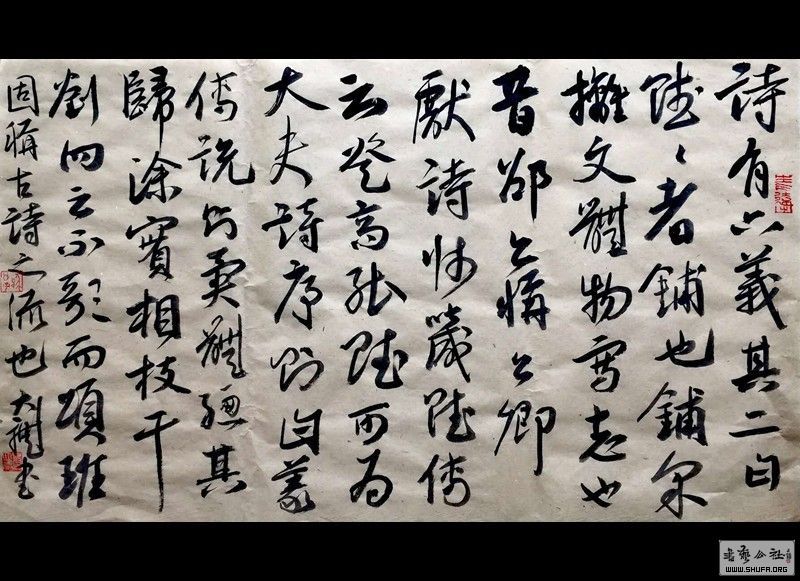 詩有六義其二曰
賦々者鋪也鋪采
摛文體物寫志也
昔邵公稱公卿
獻詩師箴賦傳
云登高能賦可為
大夫詩序則同義
傳說則異體總其
歸涂實相枝干
劉向云不歌而頌班
固稱古詩之流也 大書
書藝公社
WWW.SHUFA.ORG